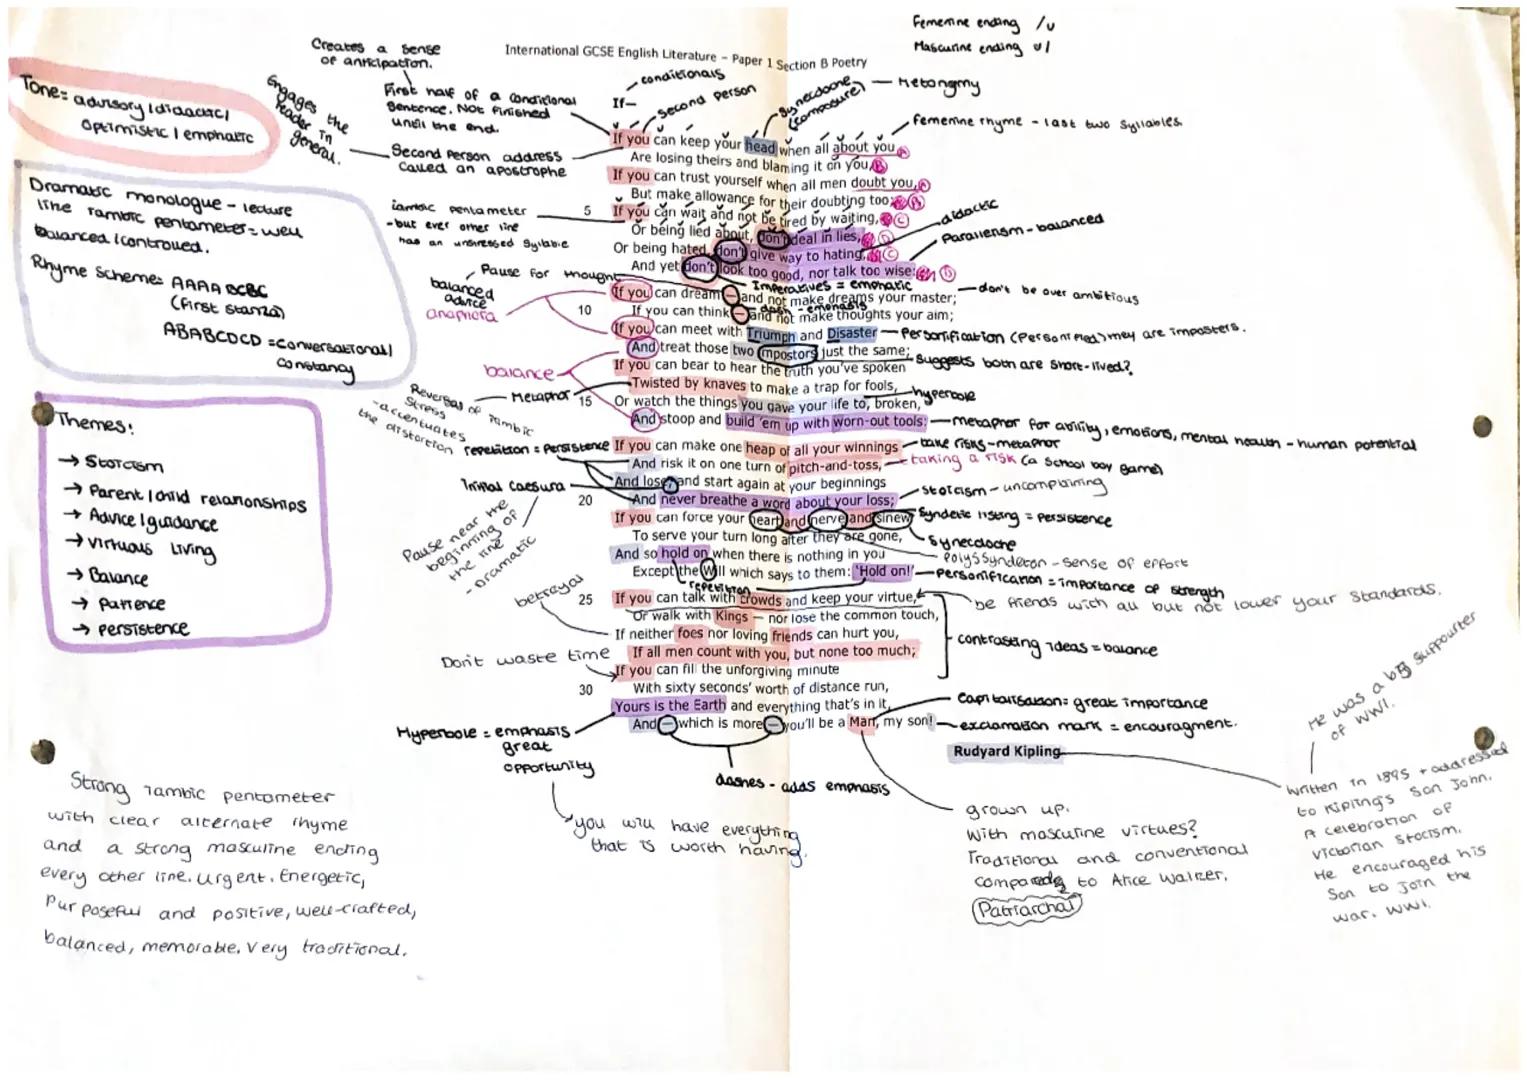 Femenine ending /u
Mascurine ending u/
International GCSE English Literature – Paper 1 Section B Poetry
Creates a sense
of anticipation.
Tone: advisory / didactic /
optimistic / emphatic
Engages the
reader in
general.
First half of a conditional
sentence. Not finished
until the end.
conditionals
second person
synecdoche
(composure)
Metonymy
femenine rhyme - last two syllables.
Second person address
called an apostrophe
Dramatic monologue - lecture
line iambic pentameter = well
balanced / controlled.
Rhyme scheme: AAAA BCBC
(first stanza)
ABABCDCD = conversational /
constancy
iambic pentameter
- but ever other line
has an unstressed syllable
Pause for thought
balanced
advice
anaphora
didactic
Parallelism - balanced
Imperatives = emphatic
dash - emphasis
don't be over ambitious
Personification (Personified) they are imposters.
suggests both are short-lived?
balance
Metaphor
hyperbole
Reversal of iambic
stress
- accentuates
the distortion
metaphor for ability, emotions, mental health - human potential
repetition = persistence
take risks - metaphor
taking a risk (a school boy game)
Initial caesura
Pause near the
beginning of
the line
- Dramatic
stoicism - uncomplaining
Syndetic listing = persistence
Synecdoche
Polyssyndeton - sense of effort
Personification = importance of strength
repetition
be friends with all but not lower your standards.
betrayal
contrasting ideas = balance
Don't waste time
If—
If you can keep your head when all about you
Are losing theirs and blaming it on you,
If you can trust yourself when all men doubt you,
But make allowance for their doubting too;
5 If you can wait and not be tired by waiting,
Or being lied about, don't deal in lies,
Or being hated, don't give way to hating,
And yet don't look too good, nor talk too wise:
If you can dream – and not make dreams your master;
10 If you can think – and not make thoughts your aim;
If you can meet with Triumph and Disaster
And treat those two impostors just the same;
If you can bear to hear the truth you've spoken
Twisted by knaves to make a trap for fools,
15 Or watch the things you gave your life to, broken,
And stoop and build 'em up with worn-out tools:
If you can make one heap of all your winnings
And risk it on one turn of pitch-and-toss,
And lose, and start again at your beginnings
20 And never breathe a word about your loss;
If you can force your heart and nerve and sinew
To serve your turn long after they are gone,
And so hold on when there is nothing in you
Except the Will which says to them: 'Hold on!'
25 If you can talk with crowds and keep your virtue,
Or walk with Kings – nor lose the common touch,
If neither foes nor loving friends can hurt you,
If all men count with you, but none too much;
If you can fill the unforgiving minute
30 With sixty seconds' worth of distance run,
Yours is the Earth and everything that's in it,
And – which is more – you'll be a Man, my son!
Rudyard Kipling
Themes:
→ Stoicism
→ Parent / child relationships
→ Advice / guidance
→ virtuous living
→ Balance
→ Patience
→ persistence
Capitalisation = great importance
exclamation mark = encouragment.
Hyperbole = emphasis
great
opportunity
dashes - adds emphasis
you will have everything
that is worth having.
grown up.
With masculine virtues?
Traditional and conventional
compared to Alice Walker.
Patriarchal
He was a big suppourter
of WW1.
Written in 1895 + addressed
to Kipling's son John.
A celebration of
Victorian Stocism.
He encouraged his
son to join the
war. WW1.
Strong iambic pentameter
with clear alternate rhyme
and a strong masculine ending
every other line. Urgent. Energetic,
Purposeful and positive, well-crafted,
balanced, memorable. Very traditional.